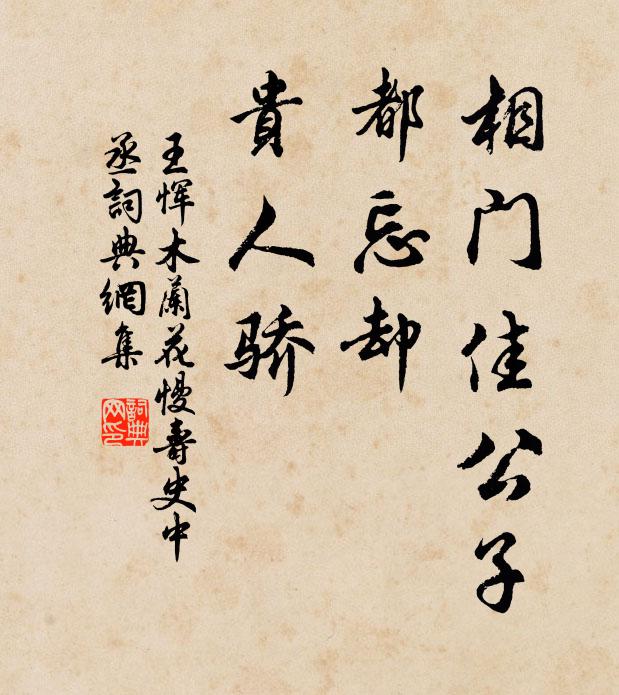 相门佳公子
都忘却
貴人骄
王恽木蘭花慢壽史中
丞詞典網集
詞典网印